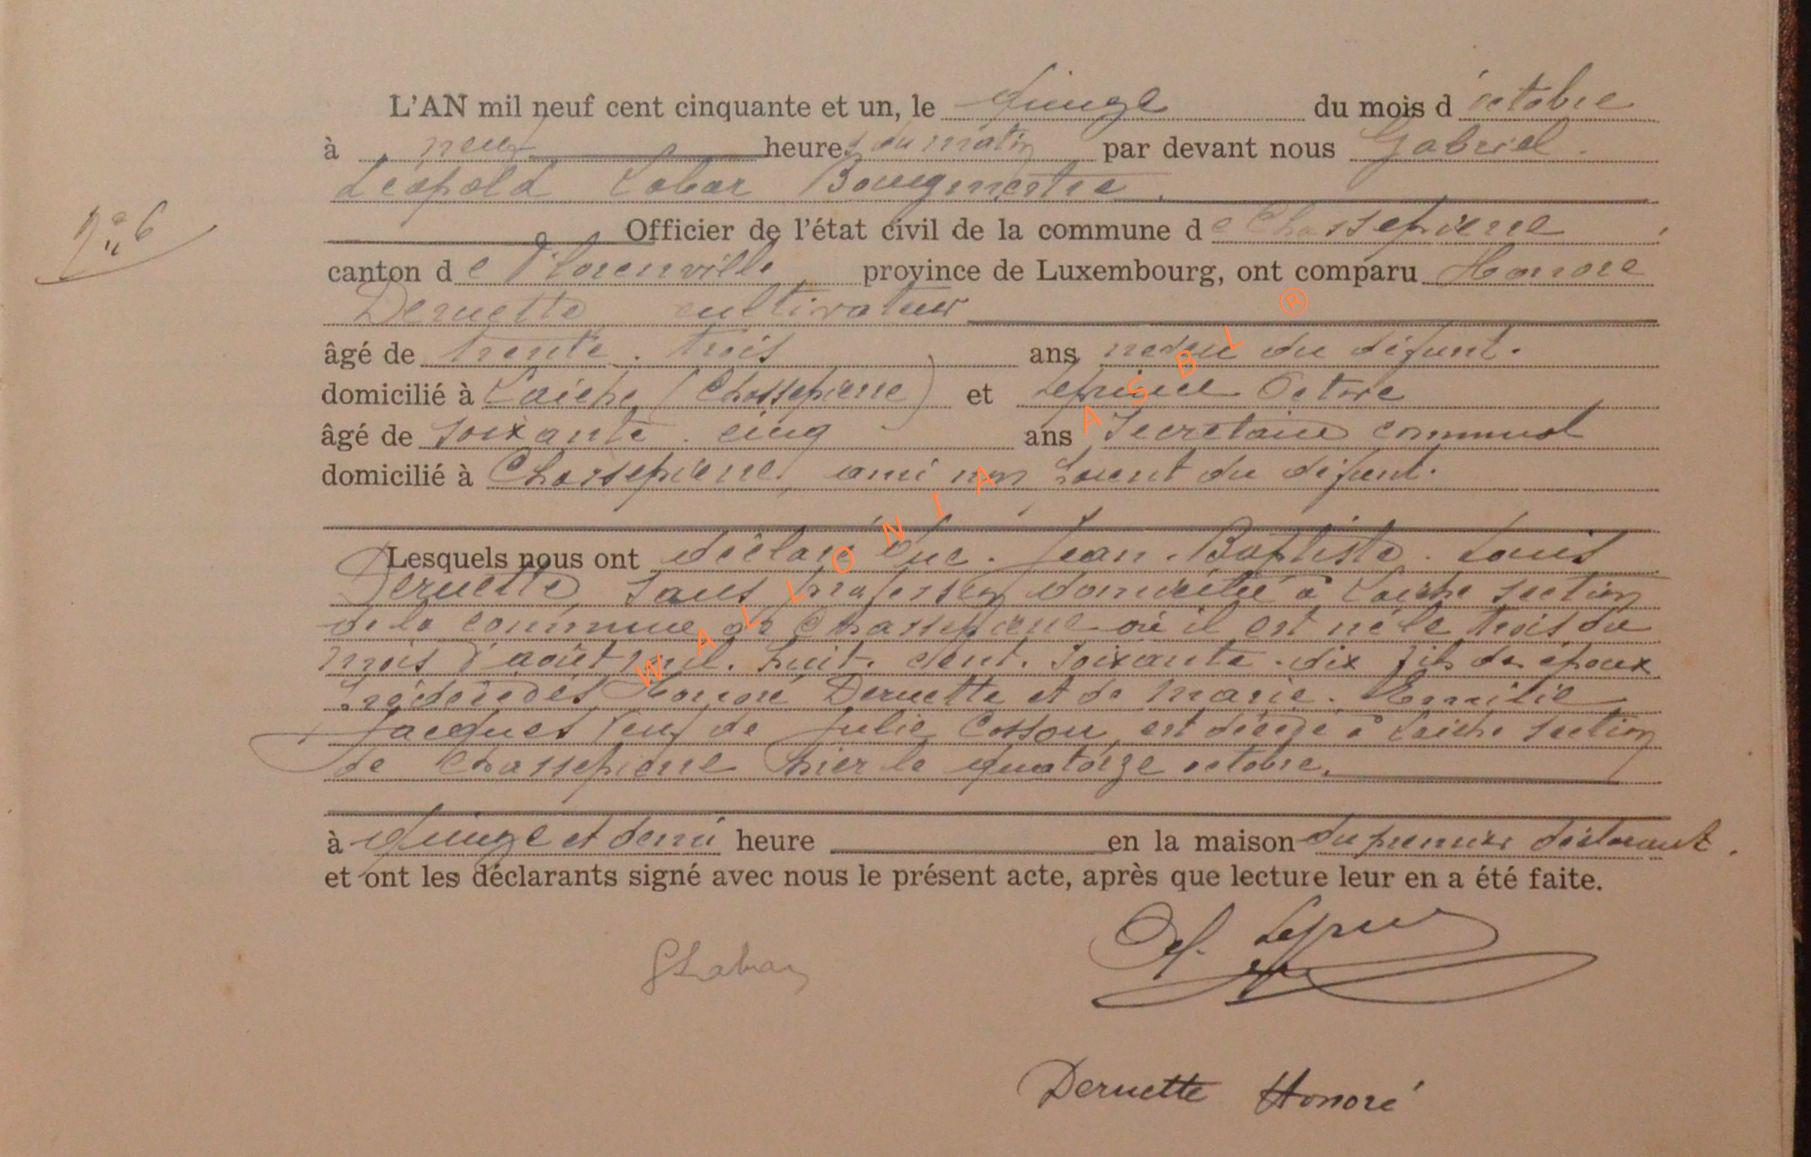 L'AN mil neuf cent cinquante et un, le quinze du mois d'octobre
à neuf heures du matin par devant nous Gabriel
Léopold Labar Bourgmestre
N° 6
Officier de l'état civil de la commune de Chassepierre,
canton de Florenville province de Luxembourg, ont comparu Honoré
Deruette cultivateur
âgé de trente-trois ans neveu du défunt.
domicilié à Laiche (Chassepierre) et Octave
âgé de soixante-cinq ans Secrétaire communal
domicilié à Chassepierre, ami non parent du défunt.
Lesquels nous ont déclaré que Jean-Baptiste-Louis
Deruette, sans profession domicilié à Laiche section
de la commune de Chassepierre où il est né le trois du
mois d'août mil-huit-cent-soixante-dix fils des époux
prédécédés Honoré Deruette et de Marie-Emilie
Jacques veuf de Julie Cosson est décédé à Laiche section
de Chassepierre hier le quatorze octobre,
à quinze et demi heure en la maison du premier déclarant.
et ont les déclarants signé avec nous le présent acte, après que lecture leur en a été faite.
GLabar
Deruette Honoré
WALLONIA ASBL ®